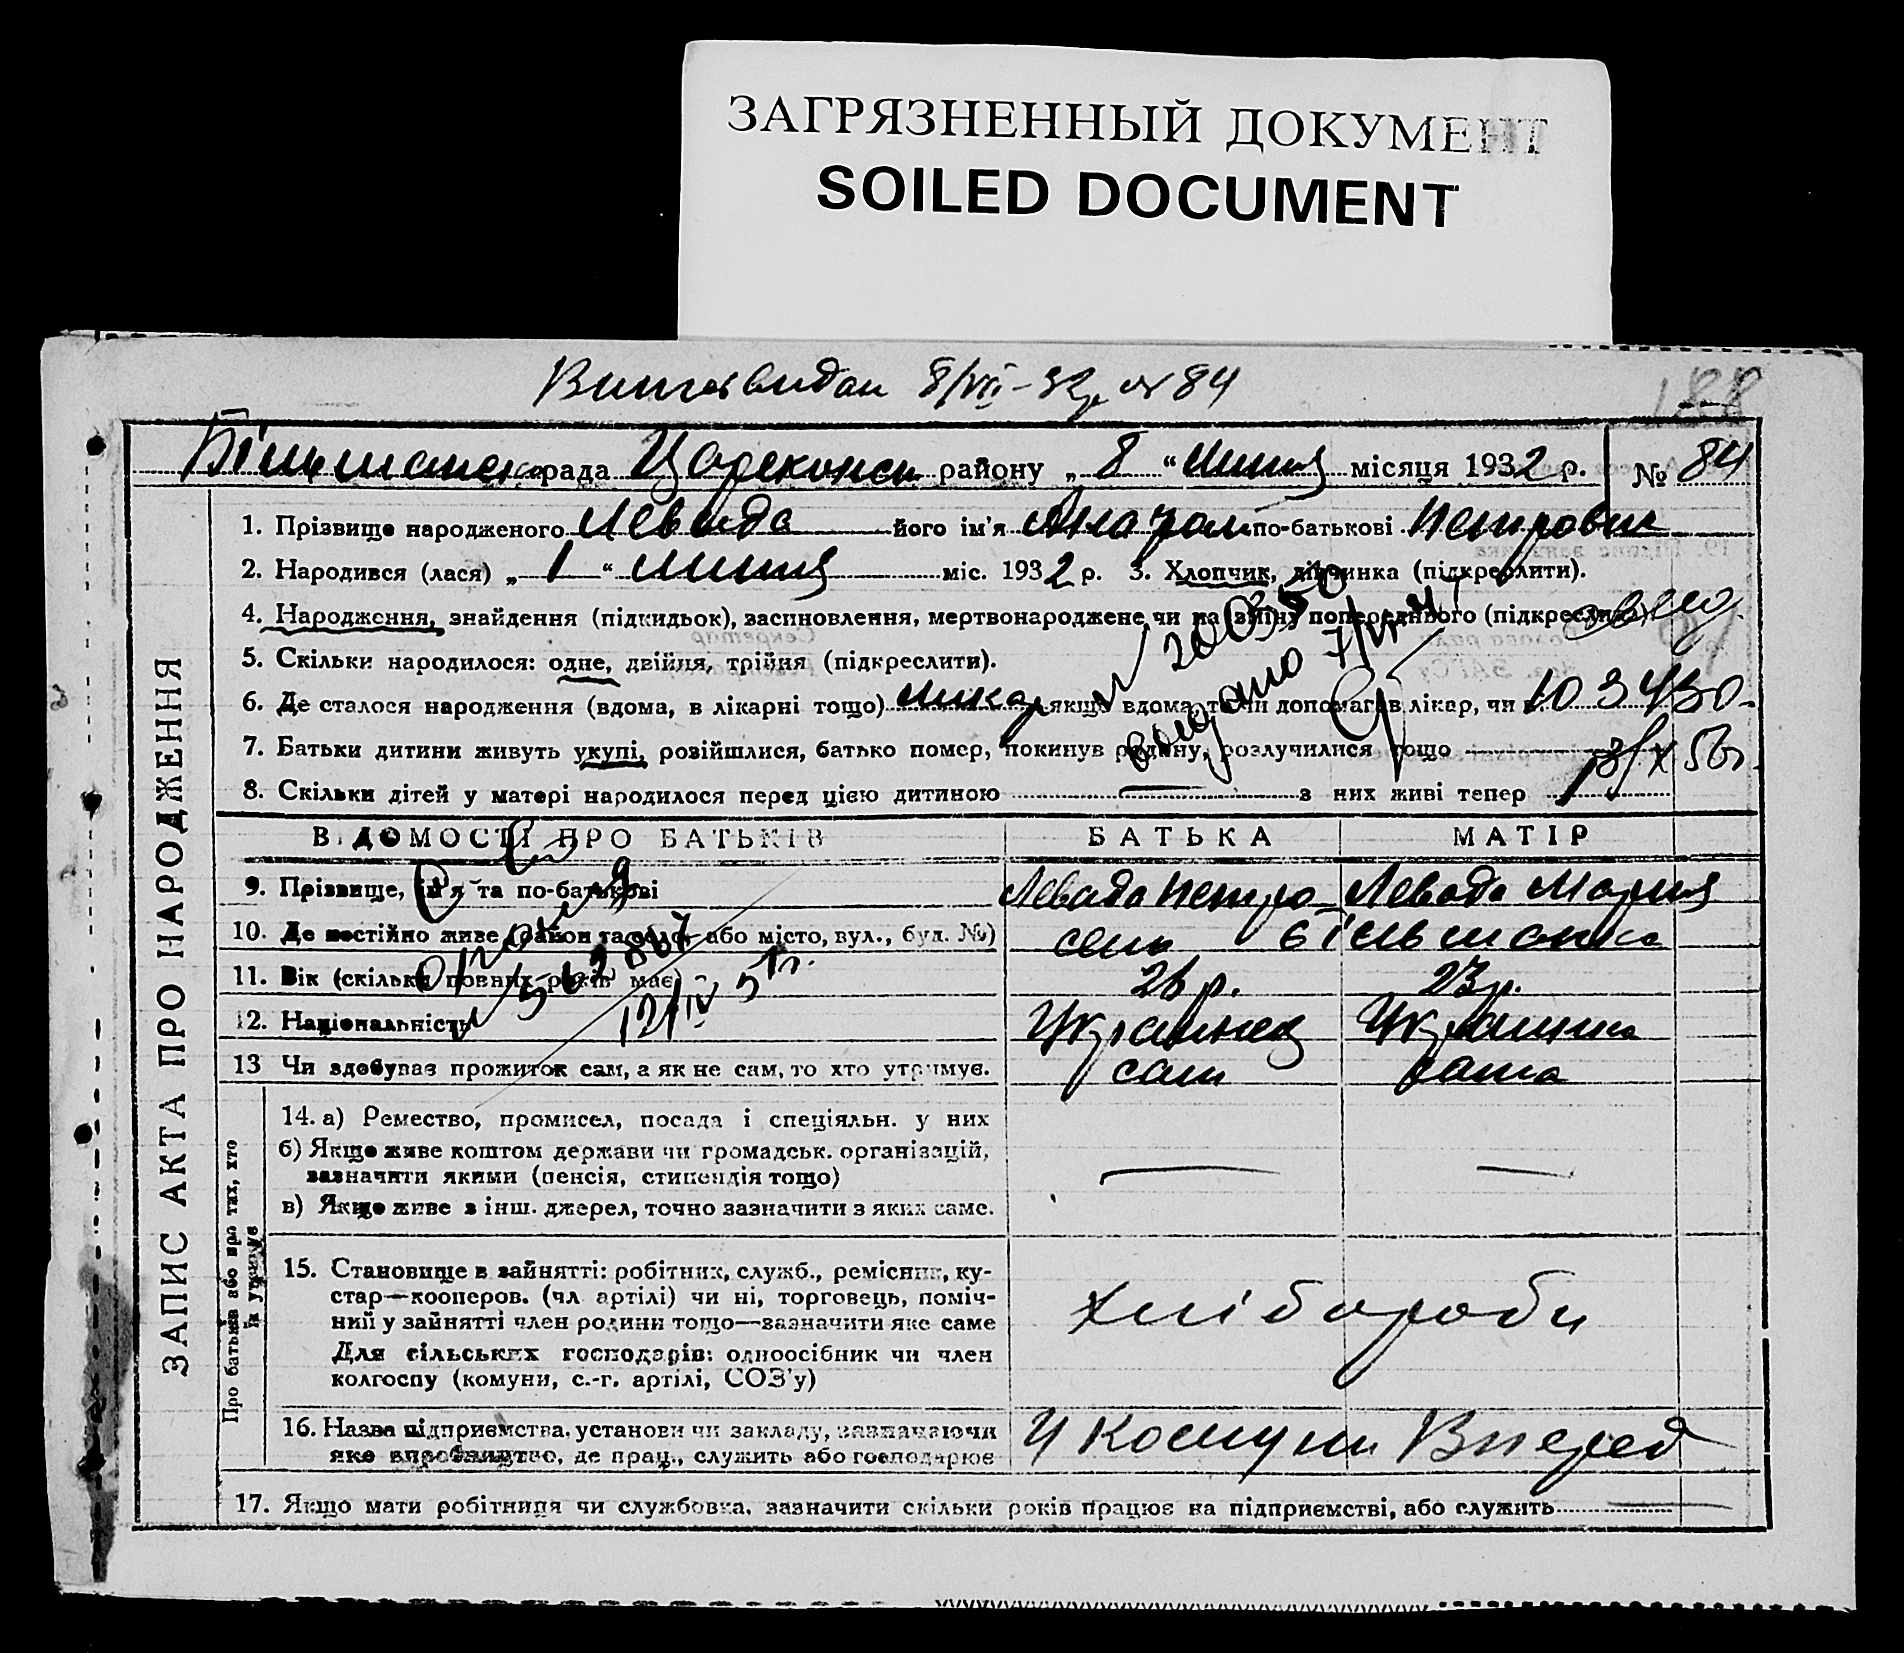 ЗАГРЯЗНЕННЫЙ ДОКУМЕНТ
SOILED DOCUMENT
8/VII-32р. № 84
188
рада району „ 8 “ липня місяця 1932 р. № 84
1. Прізвище народженого Левада його ім'я по-батькові Петрович
2. Народився (лася) „ 1 “ липня міс. 1932 р. 3. Хлопчик, дівчинка (підкреслити).
4. Народження, знайдення (підкидьок), засиновлення, мертвонароджене чи на зміну попереднього (підкреслити)
5. Скільки народилося: одне, двійня, трійня (підкреслити).
6. Де сталося народження (вдома, в лікарні тощо) якщо вдома, то чи допомагав лікар, чи
7. Батьки дитини живуть укупі, розійшлися, батько помер, покинув родину, розлучилися тощо
8. Скільки дітей у матері народилося перед цією дитиною — з них живі тепер 1
ЗАПИС АКТА ПРО НАРОДЖЕННЯ
ВІДОМОСТІ ПРО БАТЬКІВ БАТЬКА МАТІР
9. Прізвище, ім'я та по-батькові Левада Петро Левада Мария
10. Де постійно живе (район та село, або місто, вул., буд. №)
11. Вік (скільки повних років має) 26 р. 23 р.
12. Національність Украинец Украинка
13 Чи здобуває прожиток сам, а як не сам, то хто утримує. сам сама
Про батьків або про тих, хто їх утримує
14. а) Ремество, промисел, посада і спеціяльн. у них
б) Якщо живе коштом держави чи громадськ. організацій,
зазначити якими (пенсія, стипендія тощо)
в) Якщо живе з інш. джерел, точно зазначити з яких саме.
15. Становище в зайнятті: робітник, служб., ремісник, ку-
стар—кооперов. (чл артілі) чи ні, торговець, поміч-
ний у зайнятті член родини тощо—зазначити яке саме
Для сільських господарів: одноосібник чи член
колгоспу (комуни, с.-г. артілі, СОЗ'у)
хлібороби
16. Назва підприємства, установи чи закладу, зазначаючи
яке виробництво, де прац., служить або господарює
У Вперед
17. Якщо мати робітниця чи службовка, зазначити скільки років працює на підприємстві, або служить —